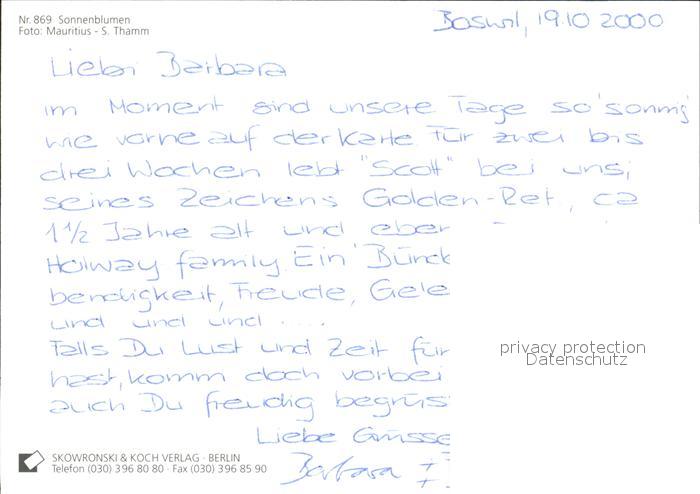 Nr. 869 Sonnenblumen
Foto: Mauritius - S. Thamm
Boswil, 19.10 2000
Liebe Barbara
im Moment sind unsere Tage so 'sonnig'
wie vorne auf der Karte. Für zwei bis
drei Wochen lebt "Scott" bei uns;
seines Zeichens Golden-Ret., ca
1 1/2 Jahre alt und eben
Holway family. Ein Bünde
bendigkeit, Freude, Gele
und und und ....
Falls Du Lust und Zeit für
hast, komm doch vorbei
auch Du freudig begrüs
Liebe Grüsse
Barbara
privacy protection
Datenschutz
SKOWRONSKI & KOCH VERLAG · BERLIN
Telefon (030) 3 96 80 80 · Fax (030) 3 96 85 90